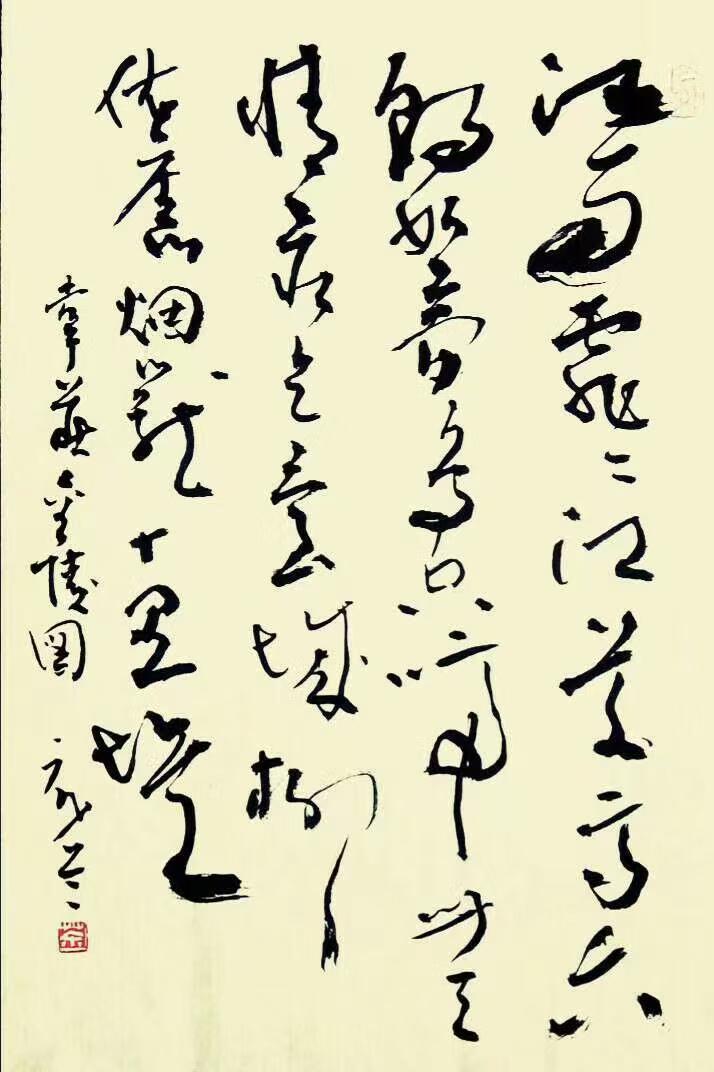 江雨霏霏江草齊六
朝如夢鳥空啼無
情最是臺城柳
依舊烟籠十里堤
韋莊金陵圖